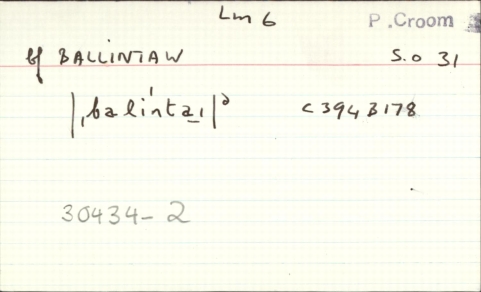 Lm 6
P. Croom
bf BALLINTAW S.O 31
|ˌbalinˈta̱ɪ|ᵓ C394B178
30434-2